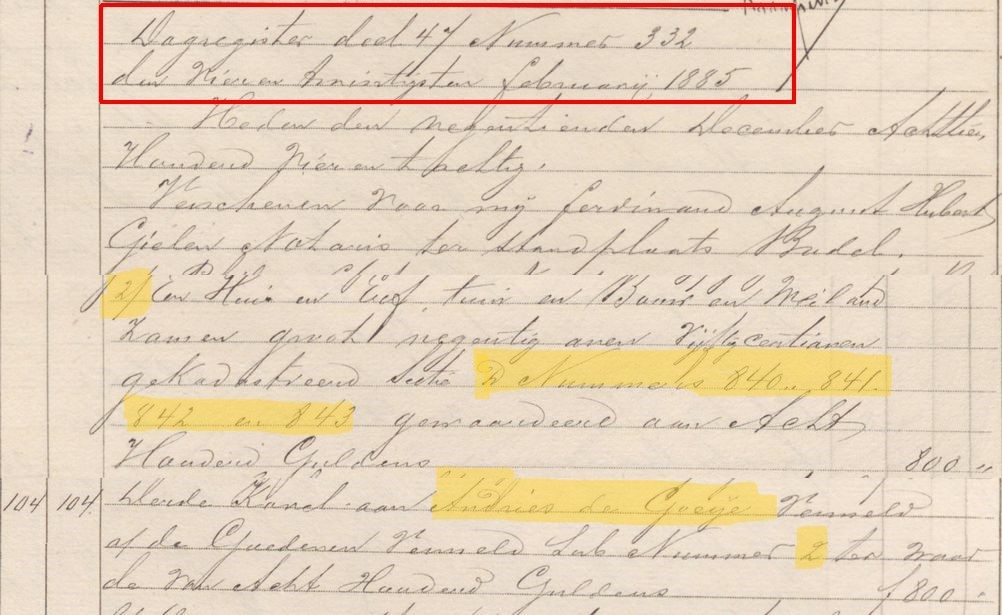 Dagregister deel 47 Nummer 332
den Vier en twintigsten februarij 1885
Heden den negentienden December Achttien
Honderd Vier en tachtig.
Verschenen voor mij Ferdinand August Hubert
Gielen Notaris ter standplaats Budel.
2/ Een Huis en Erf tuin en Bouw en Weiland
Zamen groot negentig aren Vijftig centiaren
gekadastreerd Sectie D Nummers 840. 841.
842 en 843 gewaardeerd aan Acht
Honderd Guldens 800 "
104 104. Derde Kavel aan Andries de Goeije Vermeld
de Goederen Vermeld Sub Nummer 2 ter waar
de van Acht Honderd Guldens f 800 "